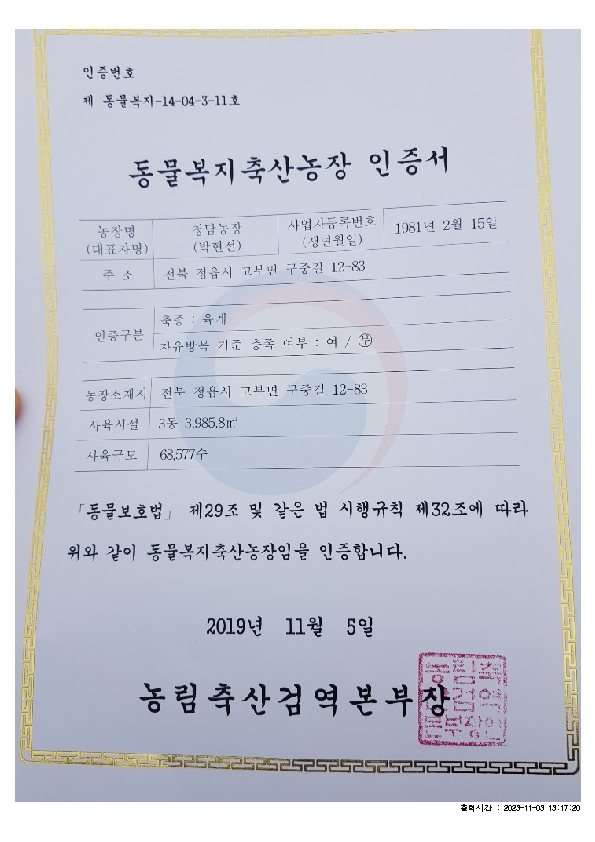 인증번호
제 동물복지-14-04-3-11호
동물복지축산농장 인증서
농장명
(대표자명)
정담농장
(박현선)
사업자등록번호
(생년월일)
1981년 2월 15일
주 소
전북 정읍시 고부면 구중길 12-83
인증구분
축종 : 육계
자유방목 기준 충족 여부 : 여 / 부
농장소재지
전북 정읍시 고부면 구중길 12-83
사육시설
3동 3,985.8㎡
사육규모
68,577수
「동물보호법」 제29조 및 같은 법 시행규칙 제32조에 따라
위와 같이 동물복지축산농장임을 인증합니다.
2019년 11월 5일
농림축산검역본부장
농림축
산검역
본부장인
출력시간 : 2023-11-03 13:17:20